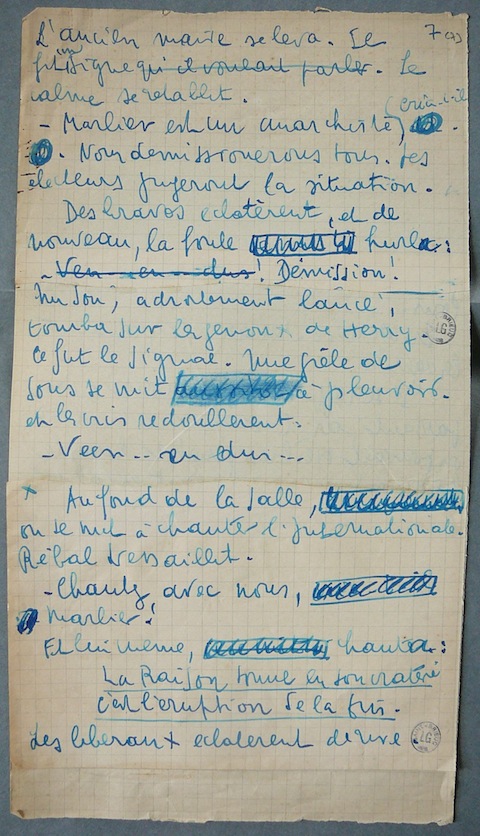 7
L'ancien maire se leva. Il
fit signe qu'il voulait parler. Le
calme se rétablit.
- Marlier est un anarchiste,
Nous démissionnerons tous. Les
électeurs jugeront la situation.
Des bravos éclatèrent, et de
nouveau, la foule hurla :
- Démission !
Un sou, adroitement lancé,
tomba sur les genoux de Henry.
Ce fut le signal. Une grêle de
sous se mit à pleuvoir.
et les cris redoublèrent :
- en
Au fond de la salle,
on se mit à chanter l'Internationale.
Rébal tressaillit.
- Chantez avec nous,
Marlier !
Et lui même, chanta :
La Raison tonne en son cratère
c'est l'éruption de la fin.
Les libéraux éclatèrent de rire